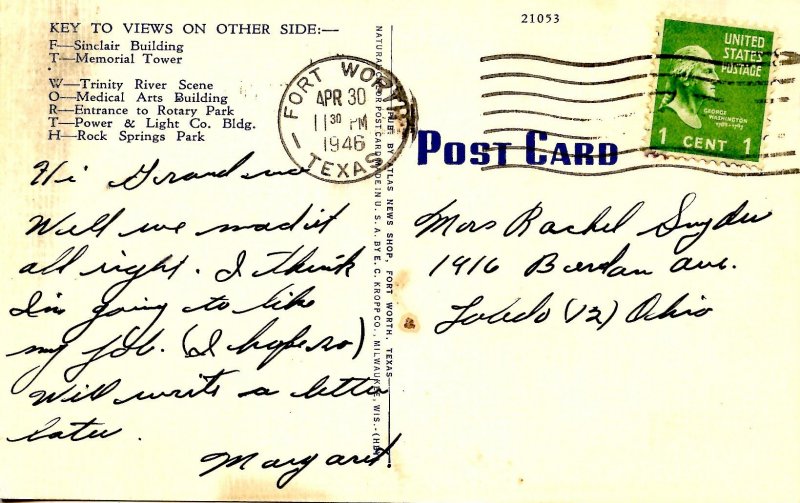 KEY TO VIEWS ON OTHER SIDE:—
F—Sinclair Building
T—Memorial Tower
W—Trinity River Scene
O—Medical Arts Building
R—Entrance to Rotary Park
T—Power & Light Co. Bldg.
H—Rock Springs Park
Hi Grandma
Well we mad it
all right. I think
I'm going to like
my job. (I hope so)
Will write a letter
later.
Margaret.
PUB. BY ATLAS NEWS SHOP, FORT WORTH, TEXAS—
POST CARD MADE IN U.S.A. BY E. C. KROPP CO., MILWAUKEE, WIS.
21053
FORT WORTH
APR 30
11 30 PM
1946
TEXAS
UNITED
STATES
POSTAGE
GEORGE
WASHINGTON
1 CENT 1
POST CARD
Mrs Rachel Snyder
1916 Bordan ave.
Toledo (12) Ohio